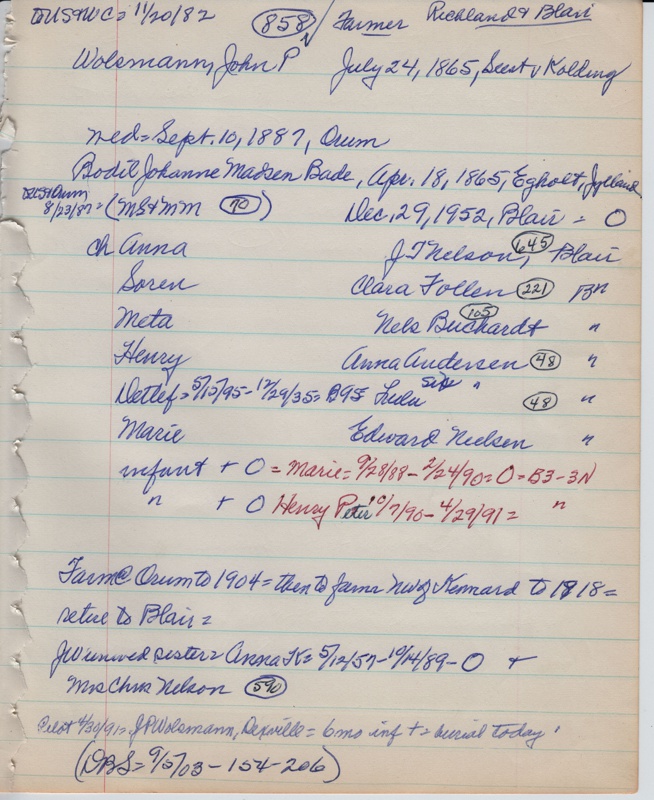 to US & WC = 11/20/82 858 / Farmer Richland & Blair
Wolsmann, John P July 24, 1865, Seest v Kolding
med = Sept. 10, 1887, Orum
Bodil Johanne Madsen Bade, Apr. 18, 1865, Egholt, Jylland
to US & Orum
8/23/87 = (MB & MM 70) Dec, 29, 1952, Blair = O
ch Anna J T Nelson, 645 Blair
Soren Clara Follen 221 Bn
Meta Nels Buchardt 105 "
Henry Anna Andersen 48 "
Detlef = 5/15/95 - 12/29/35 = B95 Lulu " 48 "
Marie Edward Nielsen "
infant + O = Marie = 9/28/88 - 2/24/90 = O = B3 - 3N
" + O Henry Peter 10/7/90 - 4/29/91 = "
Farm @ Orum to 1904 = then to farm NW of Kennard to 1918 =
retire to Blair =
JW unwed sister = Anna K = 5/12/57 - 10/14/89 - O +
Mrs Chris Nelson 590
Pilot 4/30/91 = J P Wolsmann, Dexville = 6 mo inf + = burial today '
(DBS = 9/5/03 - 154 - 206)